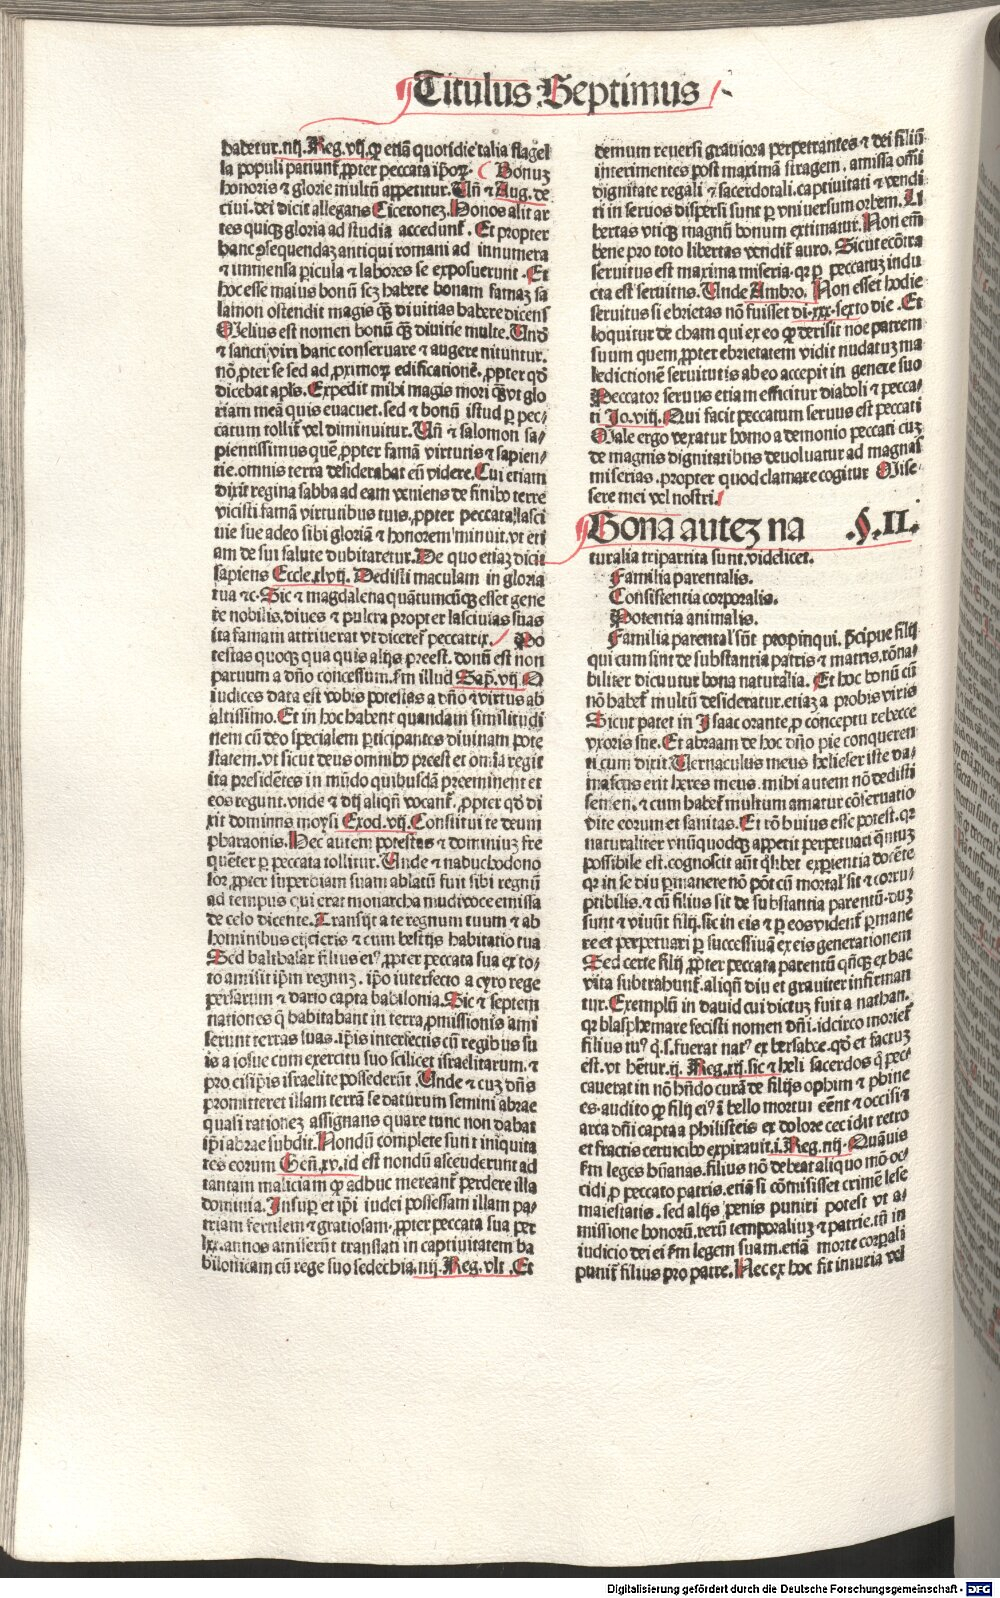 Titulus Septimus
habetur .iiij. Reg. vij. ꝙ etiā quotidie talia flagel
la populi patiunt᷑ ꝓpter peccata ip̄oꝝ. Bonuꝫ
honoris ⁊ glorie multū appetitur. Uñ ⁊ Aug. de
ciui. dei dicit allegans Ciceroneꝫ. Honos alit ar
tes quiqꝫ gloria ad studia accedunt᷑. Et propter
hanc ꝯsequendaꝫ antiqui romani ad innumera
⁊ immensa ꝑicula ⁊ labores se exposuerunt. Et
hoc esse maius bonū scꝫ habere bonam famaꝫ sa
lamon ostendit magis qꝫ̄ diuitias habere dicens
Melius est nomen bonū qꝫ̄ diuitie multe. Unđ
⁊ sancti viri hanc conseruare ⁊ augere nituntur.
nō ꝓpter se sed ad ꝓximoꝝ edificationē. ꝓpter qđ
dicebat apls. Expedit mihi magis mori qꝫ̄ vt glo
riam meā quis euacuet. sed ⁊ bonū istud ꝑ pec/
catum tollit᷑ vel diminuitur. Uñ ⁊ salomon sa/
pientissimus quē ꝓpter famā virtutis ⁊ sapien/
tie. omnis terra desiderabat eū videre. Cui etiam
dixit regina sabba ad eam veniens de finibꝰ terre
vicisti famā virtutibus tuis. ꝓpter peccata lasci
uie sue adeo sibi gloriā ⁊ honorem minuit. vt eti
am de sui salute dubitaretur. De quo etiaꝫ dicit
sapiens Eccle. xlvij. Dedisti maculam in gloria
tua ⁊c. Sic ⁊ magdalena quātumcūqꝫ esset gene
re nobilis. diues ⁊ pulcra propter lasciuias suas
ita famam attriuerat vt diceret᷑ peccatrix. Po
testas quoqꝫ qua quis alijs preest. donū est non
paruum a dño concessum. fm illud Sap̄. vij. O
iudices data est vobis potestas a dño ⁊ virtus ab
altissimo. Et in hoc habent quandam similitudi
nem cū deo specialem ꝑticipantes diuinam pote
statem. vt sicut deus omnibꝰ preest et om̄ia regit
ita presidētes in mūdo quibusdā preeminent et
eos regunt. vnde ⁊ dij aliqñ vocant᷑. ꝓpter qđ di
xit dominus moysi Exod. vij. Constitui te deum
pharaonis. Hec autem potestas ⁊ dominiuꝫ fre
quēter ꝑ peccata tollitur. Unde ⁊ nabuchodono
sor ꝓpter superbiam suam ablatū fuit sibi regnū
ad tempus qui erat monarcha mūdi voce emissa
de celo dicente. Transijt a te regnum tuum ⁊ ab
hominibus eijcieris ⁊ cum bestijs habitatio tua
Sed balthasar filius eiꝰ ꝓpter peccata sua ex to/
to amisit ip̄m regnuꝫ. ip̄o interfecto a cyro rege
persarum ⁊ dario capta babilonia. Sic ⁊ septem
nationes q̄ habitabant in terra ꝓmissionis ami
serunt terras suas. ip̄is interfectis cū regibus su
is a iosue cum exercitu suo scilicet israelitarum. ⁊
pro eis ip̄is israelite possederūt. Unde ⁊ cuꝫ dñs
promitteret illam terrā se daturum semini abrae
quasi rationeꝫ assignans quare tunc non dabat
ip̄i abrae subdit. Nondū complete sunt iniquita
tes eorum Geñ. xv. id est nondū ascenderunt ad
tantam maliciam ꝙ adhuc mereant᷑ perdere illa
dominia. Insuꝑ et ip̄i iudei possessam illam pa/
triam fertilem ⁊ gratiosam. ꝓpter peccata sua per
lxx. annos amiserūt translati in captiuitatem ba
bilonicam cū rege suo sedechia. iiij. Reg. vlt. Et
demum reuersi grauiora perpetrantes ⁊ dei filiū
interimentes post maximā stragem. amissa om̄i
dignitate regali ⁊ sacerdotali. captiuitati ⁊ vendi
ti in seruos dispersi sunt ꝑ vniuersum orbem. Li
bertas vtiqꝫ magnū bonum extimatur. Non em̄
bene pro toto libertas vendit᷑ auro. Sicut ecōtra
seruitus est maxima miseria. qꝛ ꝑ peccatuꝫ indu
cta est seruitus. Unde Ambro. Non esset hodie
seruitus si ebrietas nō fuisset di. xxx. sexto die. Et
loquitur de cham qui ex eo ꝙ derisit noe patrem
suum quem ꝓpter ebrietatem vidit nudatuꝫ ma
ledictionē seruitutis ab eo accepit in genere suo
Peccator seruus etiam efficitur diaboli ⁊ pecca/
ti Jo. viij. Qui facit peccatum seruus est peccati
Male ergo vexatur homo a demonio peccati cuꝫ
de magnis dignitatibus deuoluatur ad magnas
miserias. propter quod clamare cogitur Mise/
rere mei vel nostri.
Bona auteꝫ na .§. II.
turalia tripartita sunt. videlicet.
Familia parentalis.
Consistentia corporalis.
Potentia animalis.
Familia parental᷑ sūt propinqui. p̄cipue filij
qui cum sint de substantia patris ⁊ matris. rōna/
biliter dicuntur bona naturalia. Et hoc bonū cū
nō habet᷑ multū desideratur. etiaꝫ a probis viris
Sicut patet in Isaac orante ꝓ conceptu rebecce
vxoris sue. Et abraam de hoc dño pie conqueren
ti cum dixit. Uernaculus meus helieser iste da/
mascus erit heres meus. mihi autem nō dedisti
semen. ⁊ cum habet᷑ multum amatur cōseruatio
vite eorum et sanitas. Et rō huius esse potest. qꝛ
naturaliter vnūquodqꝫ appetit perpetuari qūtuꝫ
possibile est. cognoscit aūt qꝫlibet experiētia docēte
qꝛ in se diu ꝑmanere nō pōt cū mortal᷑ sit ⁊ corru/
ptibilis. ⁊ cū filius sit de substantia parentū. duꝫ
sunt ⁊ viuūt filij. sic in eis ⁊ ꝑ eos vident᷑ ꝑmane
re et perpetuari ꝑ successiuā ex eis generationem
Sed certe filij ꝓpter peccata parentū qñqꝫ ex hac
vita subtrahunt᷑. aliqñ diu et grauiter infirman
tur. Exemplū in dauid cui dictuꝫ fuit a nathan.
qꝛ blasphemare fecisti nomen dñi. idcirco moriet᷑
filius tuꝰ q̇. s. fuerat natꝰ ex bersabee. qđ et factuꝫ
est. vt hētur. ij. Reg. xij. sic ⁊ heli sacerdos q̇ pec/
cauerat in nō hñdo curā de filijs ophni ⁊ phine
es. audito ꝙ filij eiꝰ ī bello mortui eēnt ⁊ occisi ⁊
arca dñi capta a philisteis ex dolore cecidit retro
et fractis ceruicibꝰ expirauit. i. Reg. iiij. Quāuis
fm leges hūanas. filius nō debeat aliquo mō oc/
cidi ꝓ peccato patris. etiā si cōmisisset crimē lese
maiestatis. sed alijs penis puniri potest vt a/
missione honorū. rerū temporaliuꝫ ⁊ patrie. tñ in
iudicio dei et fm legem suam. etiā morte corꝑali
punit᷑ filius pro patre. Nec ex hoc fit iniuria vel
Digitalisierung gefördert durch die Deutsche Forschungsgemeinschaft - DFG